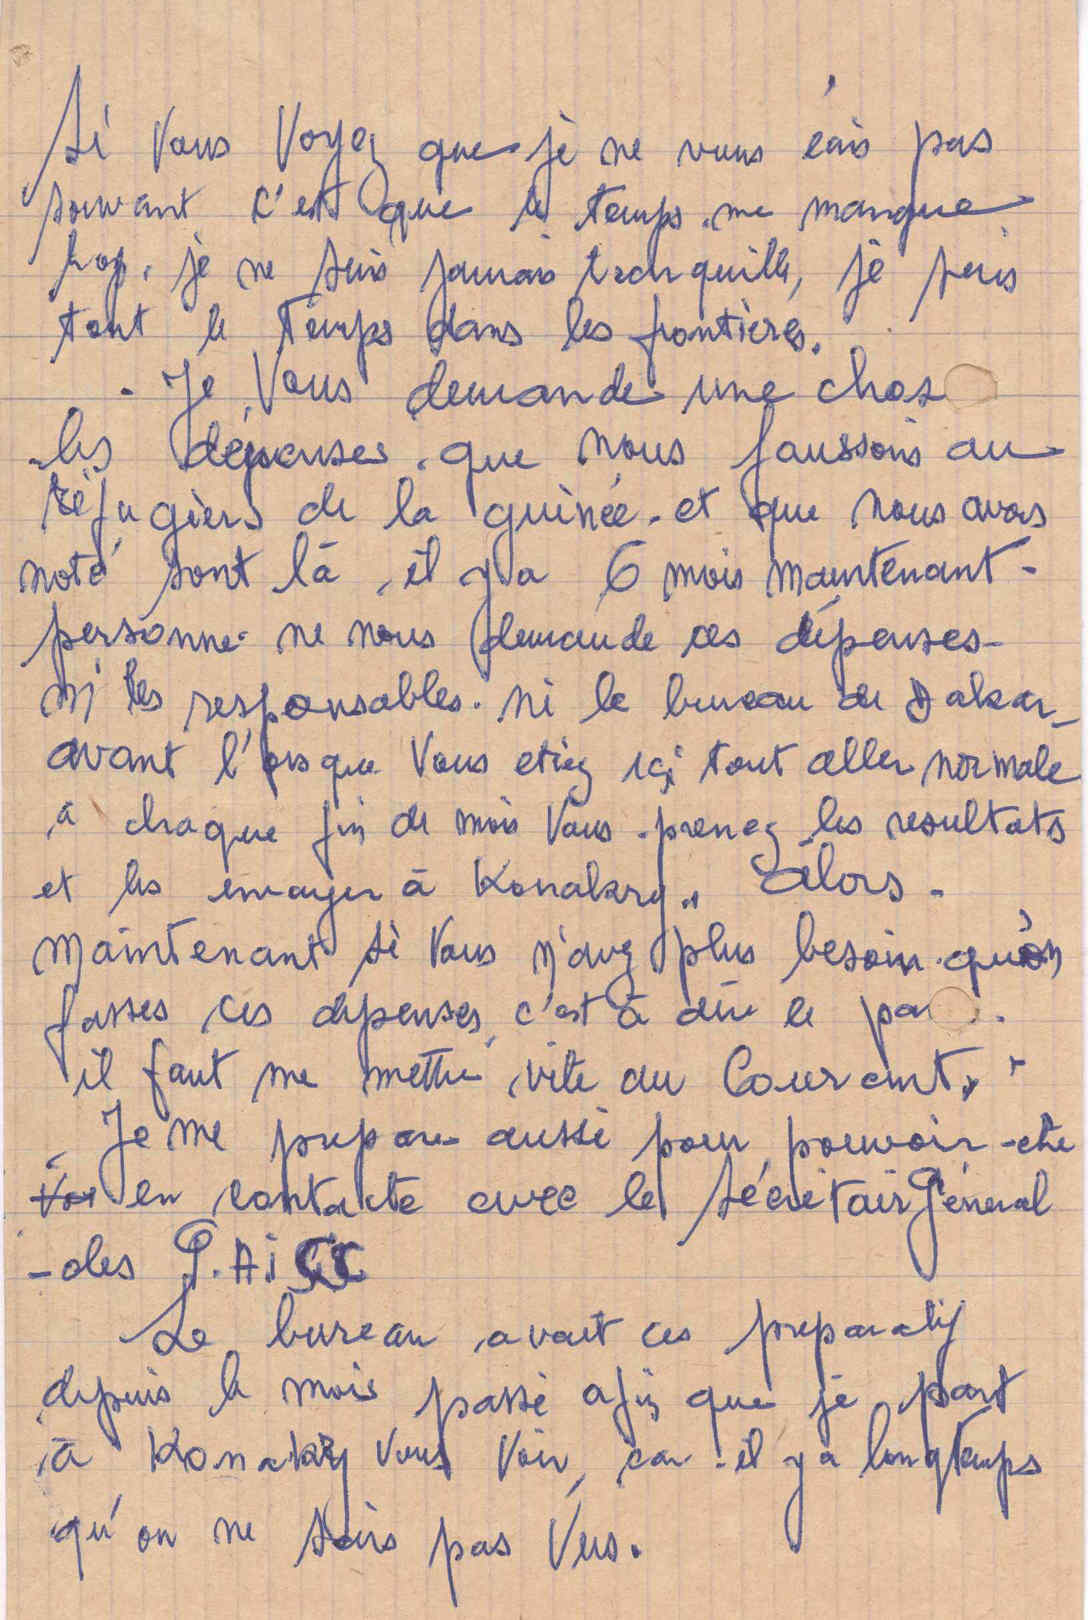 Si Vous Voyez que je ne vous écris pas
souvant c'est que le temps me manque
trop, je ne suis jamais tranquille, je suis
tout le Temps dans les frontières.
Je Vous demande une chos
les dépenses que nous faussons au
réfugièrs de la guinée et que nous avons
noté sont là, il y a 6 mois maintenant -
personne ne nous demande ces dépenses -
ni les responsables. ni le bureau de Dakar -
avant l'orsque Vous etiez içi tout aller normale
à chaque fin de mois Vous prenez les resultats
et les envoyer à Konakry.. Alors -
Maintenant si Vous n'avez plus besoin qu'on
fasses ces dépenses, c'est à dire le
il faut me mettre vite au Courant,
Je me prepare aussi pour pouvoir être
en contacte avec le Sécrétair Général
- des P.Ai
Le bureau avait ces preparatif
depuis le mois passé afin que je part
à Konakry Vous Voir, car il y a longtemps
qu'on ne sais pas Vus.